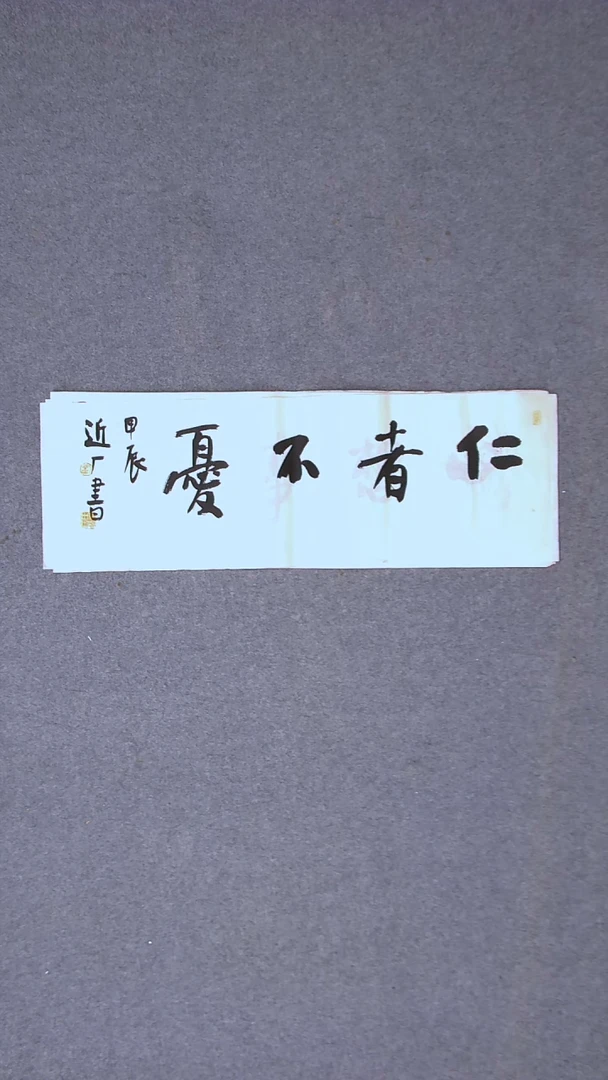 仁者不憂
甲辰
近广書